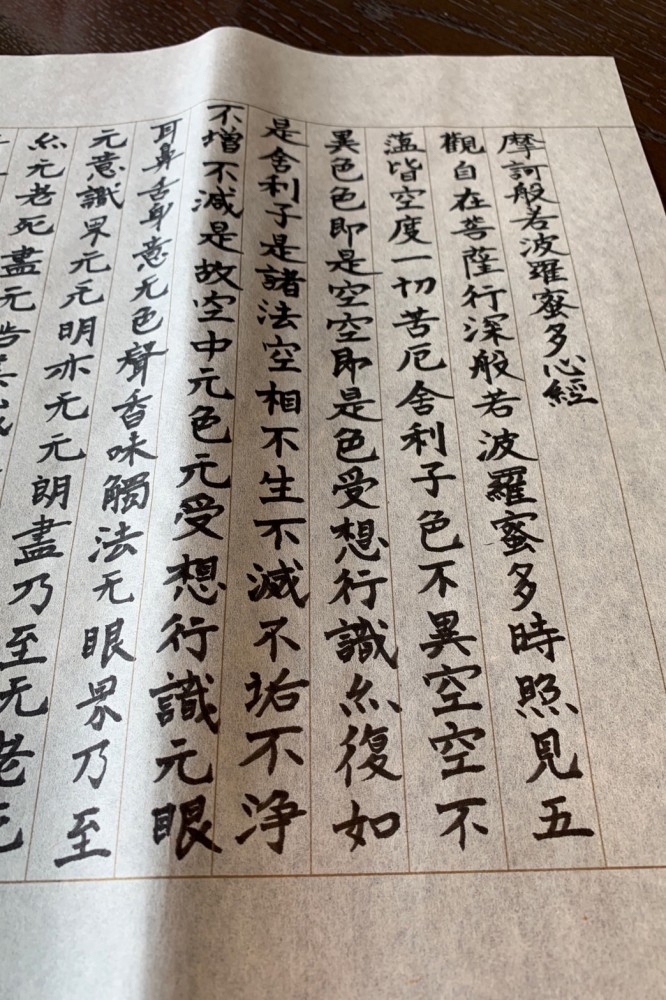 摩訶般若波羅蜜多心經
觀自在菩薩行深般若波羅蜜多時照見五
蘊皆空度一切苦厄舍利子色不異空空不
異色色即是空空即是色受想行識亦復如
是舍利子是諸法空相不生不滅不垢不浄
不増不減是故空中元色元受想行識元眼
耳鼻舌身意无色聲香味觸法无眼界乃至
元意識界元元明亦无元朗盡乃至无老死
亦元老死盡元